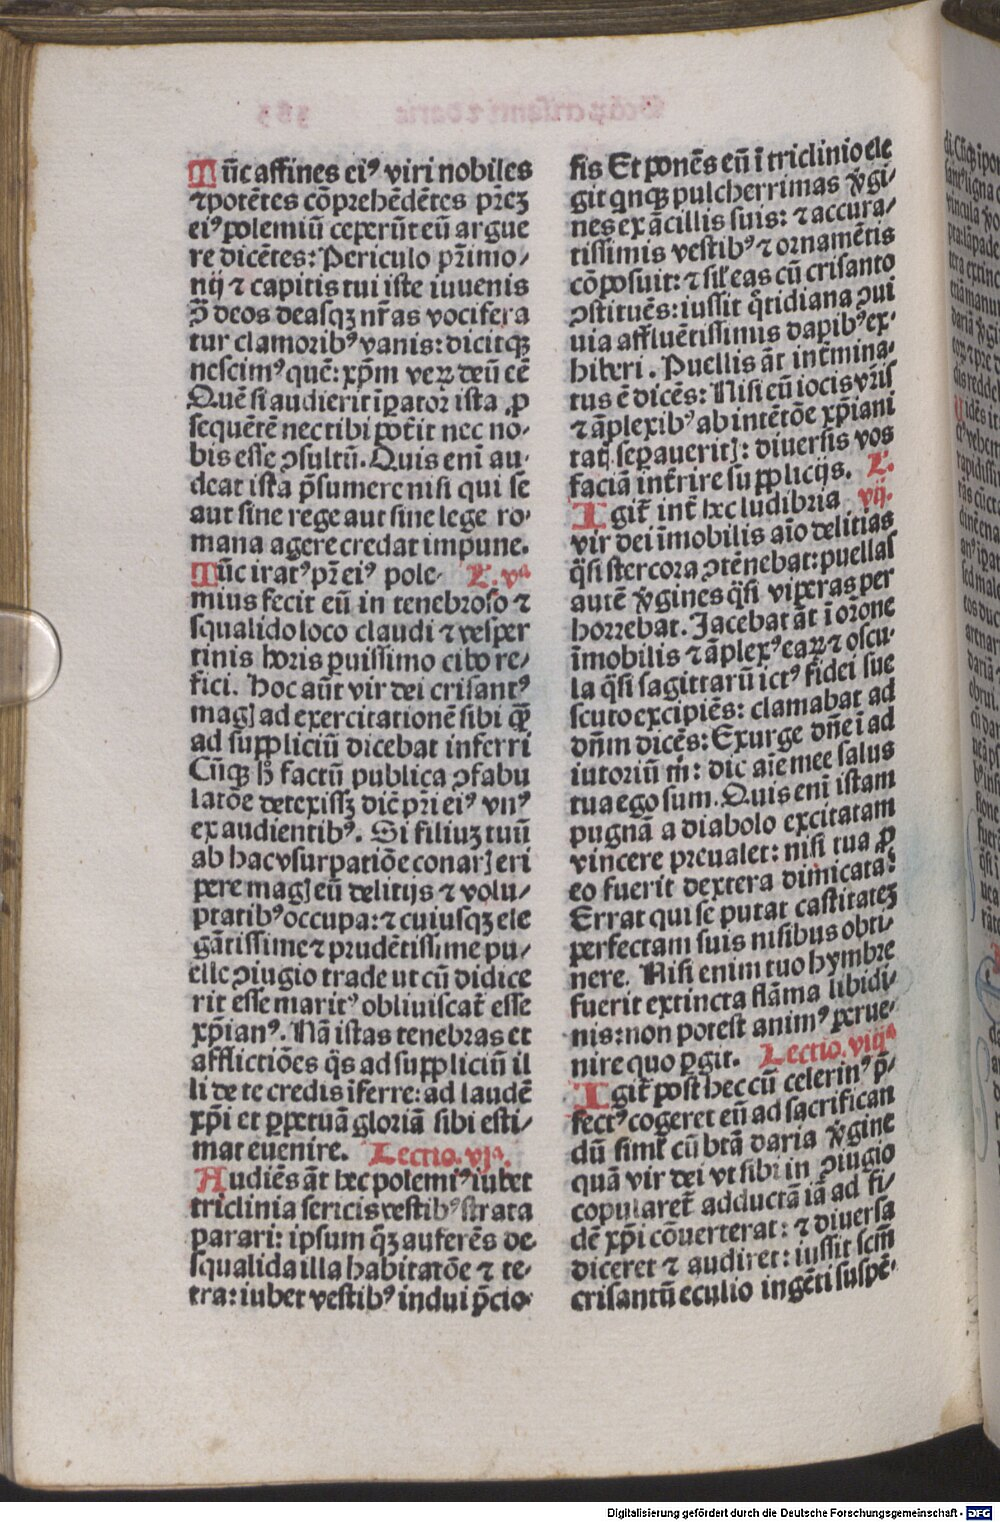 Tūc affines eiꝰ viri nobiles
⁊potētes cōprehēdētes prēꝫ
eiꝰ polemiū ceperūt eū argue
re dicētes: Periculo pr̄imo/
nij ⁊ capitis tui iste iuuenis
ꝯ̄ deos deasqꝫ nr̄as vocifera
tur clamoribꝰ vanis: dicitqꝫ
nescimꝰ quē: xp̄m veꝝ deū eē
Quē si audierit īꝑator ista ꝓ
sequētē nec tibi pot̄it nec no/
bis esse ꝯsultū. Quis eni au/
deat ista p̄sumere nisi qui se
aut sine rege aut sine lege ro/
mana agere credat impune.
Tūc iratꝰ pr̄ eiꝰ pole- L. vᵃ
mius fecit eū in tenebroso ⁊
squalido loco claudi ⁊ vesper
tinis horis ꝑuissimo cibo re/
fici. Hoc aūt vir dei crisantꝰ
magꝭ ad exercitationē sibi qꝫ̄
ad suppliciū dicebat inferri
Cūqꝫ h̄ factū publica ꝯfabu
latōe detexissꝫ dic̄ pr̄i eiꝰ vnꝰ
ex audientibꝰ. Si filiuꝫ tuū
ab hac vsurpatiōe conarꝭ eri
pere magꝭ eū delitijs ⁊ volu/
ptatibꝰ occupa: ⁊ cuiusqꝫ ele
gātissime ⁊ prudētissime pu/
elle ꝯiugio trade ut cū didice
rit esse maritꝰ obliuiscat̄ esse
xp̄ianꝰ. Nā istas tenebras et
afflictiōes q̄s ad suppliciū il
li de te credis īferre: ad laudē
xp̄i et ꝑpetuā gloriā sibi esti/
mat euenire. Lectio. vjᵃ.
Audiēs āt hec polemiꝰ iubet
triclinia sericis vestibꝰ strata
parari: ipsum q̄ꝫ auferēs de
squalida illa habitatōe ⁊ te/
tra: iubet vestibꝰ indui p̄cio-
sis Et ponēs eū ī triclinio ele
git qnqꝫ pulcherrimas v̄gi/
nes ex ācillis suis: ⁊ accura/
tissimis vestibꝰ ⁊ ornamētis
cōposuit: ⁊ sil̄ eas cū crisanto
ꝯstituēs: iussit q̄tidiana ꝯui
uia affluētissimis dapibꝰ ex-
hiberi. Puellis āt int̄mina/
tus ē dicēs: Nisi eū iocis vr̄is
⁊ āplexibꝰ ab intētōe xp̄iani
tatꝭ seꝑaueritꝭ: diuersis vos
faciā int̄rire supplicijs. L.
Igit̄ int̄ hec ludibria vij.
vir dei īmobilis aīo delitias
q̄si stercora ꝯtēnebat: puellas
autē v̄gines q̄si viperas per
horrebat. Jacebat āt ī or̄one
īmobilis ⁊ āplexꝰ eaꝝ ⁊ oscu-
la q̄si sagittarū ictꝰ fidei sue
scuto excipiēs: clamabat ad
dn̄m dicēs: Exurge dn̄e ī ad
iutoriū m̄: dic aīe mee salus
tua ego sum. Quis enī istam
pugnā a diabolo excitatam
vincere preualet: nisi tua ꝓ
eo fuerit dextera dimicata?
Errat qui se putat castitateꝫ
perfectam suis nisibus obti-
nere. Nisi enim tuo hymbre
fuerit extincta flāma libidi/
nis: non potest animꝰ ꝑerue/
nire quo ꝑgit. Lectio. viijᵃ
Igit̄ post hec cū celerinꝰ p̄-
fectꝰ cogeret eū ad sacrifican
dū siml̄ cū btā daria v̄gine
quā vir dei vt sibi in ꝯiugio
copularet̄ adductā iā ad fi/
dē xp̄i cōuerterat: ⁊ diuersa
diceret ⁊ audiret: iussit scm̄
crisantū eculio ingēti suspē-
Digitalisierung gefördert durch die Deutsche Forschungsgemeinschaft - DFG